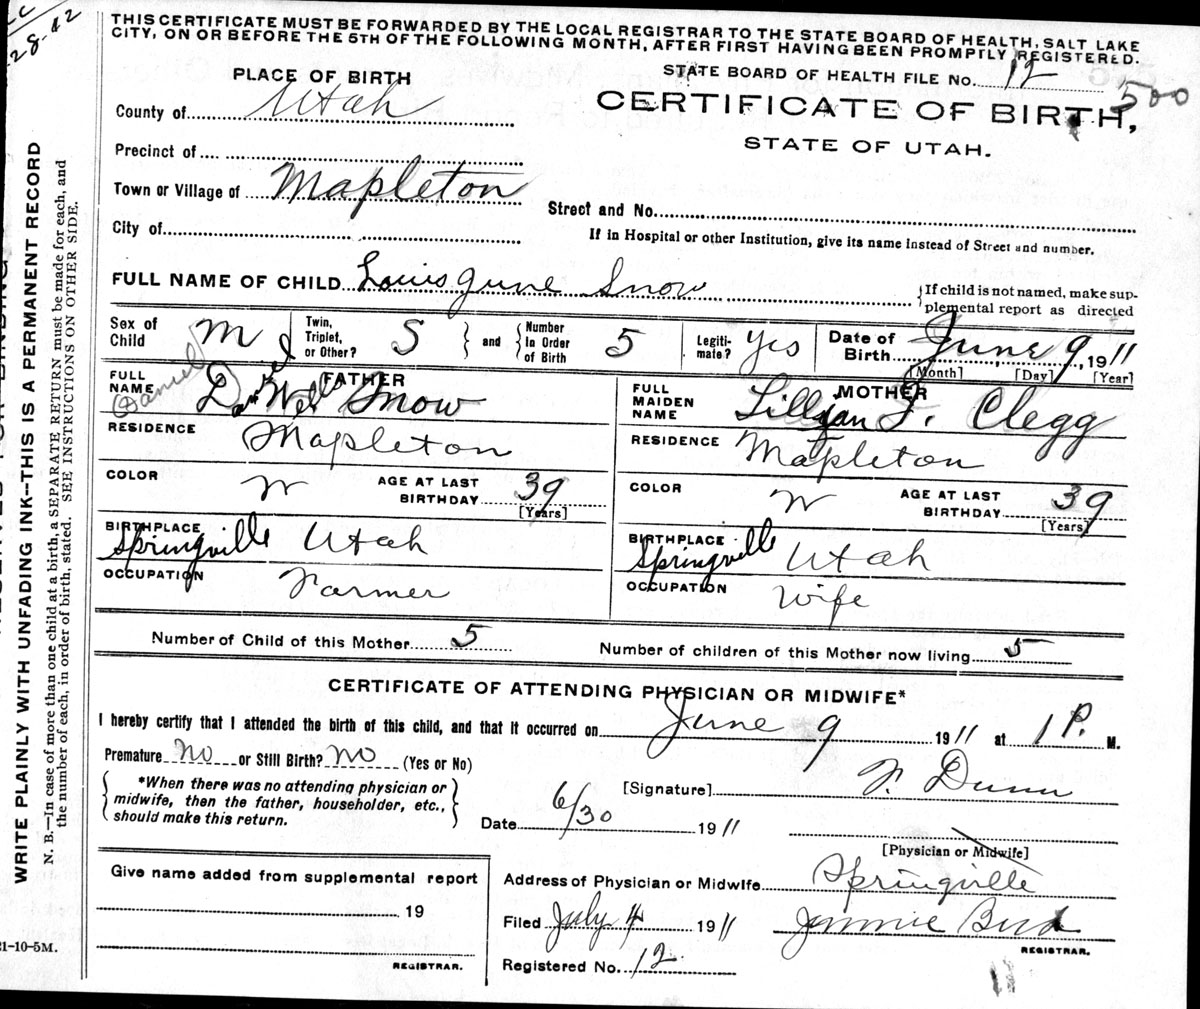 28-42
THIS CERTIFICATE MUST BE FORWARDED BY THE LOCAL REGISTRAR TO THE STATE BOARD OF HEALTH, SALT LAKE
CITY, ON OR BEFORE THE 5TH OF THE FOLLOWING MONTH, AFTER FIRST HAVING BEEN PROMPTLY REGISTERED.
PLACE OF BIRTH
STATE BOARD OF HEALTH FILE No. 12
500
County of Utah
CERTIFICATE OF BIRTH,
STATE OF UTAH.
Precinct of
Town or Village of Mapleton
Street and No.
City of
If in Hospital or other Institution, give its name instead of Street and number.
FULL NAME OF CHILD Louis June Snow
If child is not named, make sup-
plemental report as directed
Sex of Child M
Twin, Triplet, or Other? S and Number In Order of Birth 5
Legiti-mate? Yes
Date of Birth June 9, 1911
[Month] [Day] [Year]
FATHER
FULL NAME Daniel Snow
RESIDENCE Mapleton
COLOR W AGE AT LAST BIRTHDAY 39
[Years]
BIRTHPLACE Springville Utah
OCCUPATION Farmer
MOTHER
FULL MAIDEN NAME Lillian F. Clegg
RESIDENCE Mapleton
COLOR W AGE AT LAST BIRTHDAY 39
[Years]
BIRTHPLACE Springville Utah
OCCUPATION Wife
Number of Child of this Mother 5 Number of children of this Mother now living 5
CERTIFICATE OF ATTENDING PHYSICIAN OR MIDWIFE*
I hereby certify that I attended the birth of this child, and that it occurred on June 9 1911 at 1 P. M.
Premature No or Still Birth? No (Yes or No)
*When there was no attending physician or
midwife, then the father, householder, etc.,
should make this return.
[Signature] F. Dunn
Date 6/30 1911
[Physician or Midwife]
Give name added from supplemental report
19
REGISTRAR.
Address of Physician or Midwife Springville
Filed July 4 1911 Jimmie Bird
REGISTRAR.
Registered No. 12
WRITE PLAINLY WITH UNFADING INK--THIS IS A PERMANENT RECORD
N. B.—In case of more than one child at a birth, a SEPARATE RETURN must be made for each, and
the number of each, in order of birth, stated. SEE INSTRUCTIONS ON OTHER SIDE.
21-10-5M.